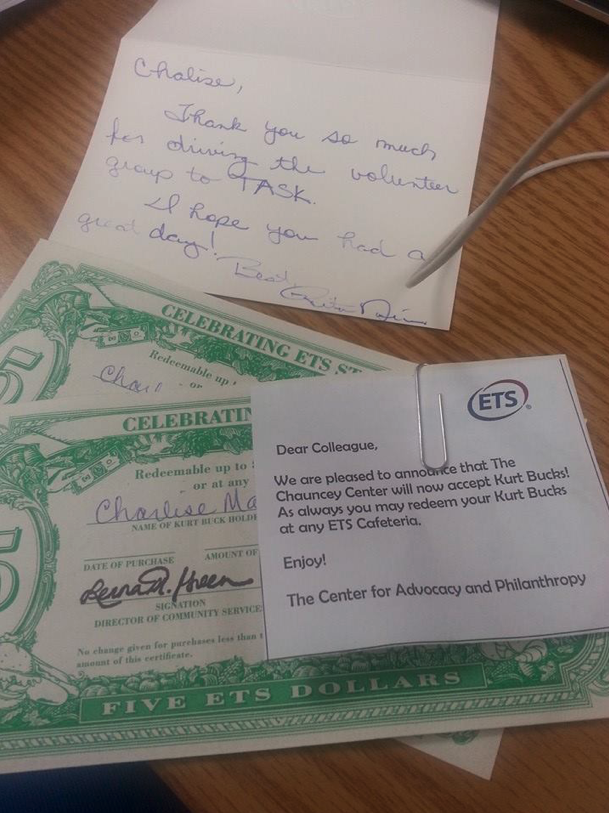 Chalise,
Thank you so much
for driving the volunteer
group to TASK.
I hope you had a
great day!
Best
CELEBRATING ETS ST
Redeemable up
or
5
CELEBRATIN
Redeemable up to
or at any
Charlise Ma
NAME OF KURT BUCK HOLD
DATE OF PURCHASE
AMOUNT OF
SIGNATION
DIRECTOR OF COMMUNITY SERVICE
No change given for purchases less than
amount of this certificate.
FIVE ETS DOLLARS
ETS
Dear Colleague,
We are pleased to announce that The
Chauncey Center will now accept Kurt Bucks!
As always you may redeem your Kurt Bucks
at any ETS Cafeteria.
Enjoy!
The Center for Advocacy and Philanthropy